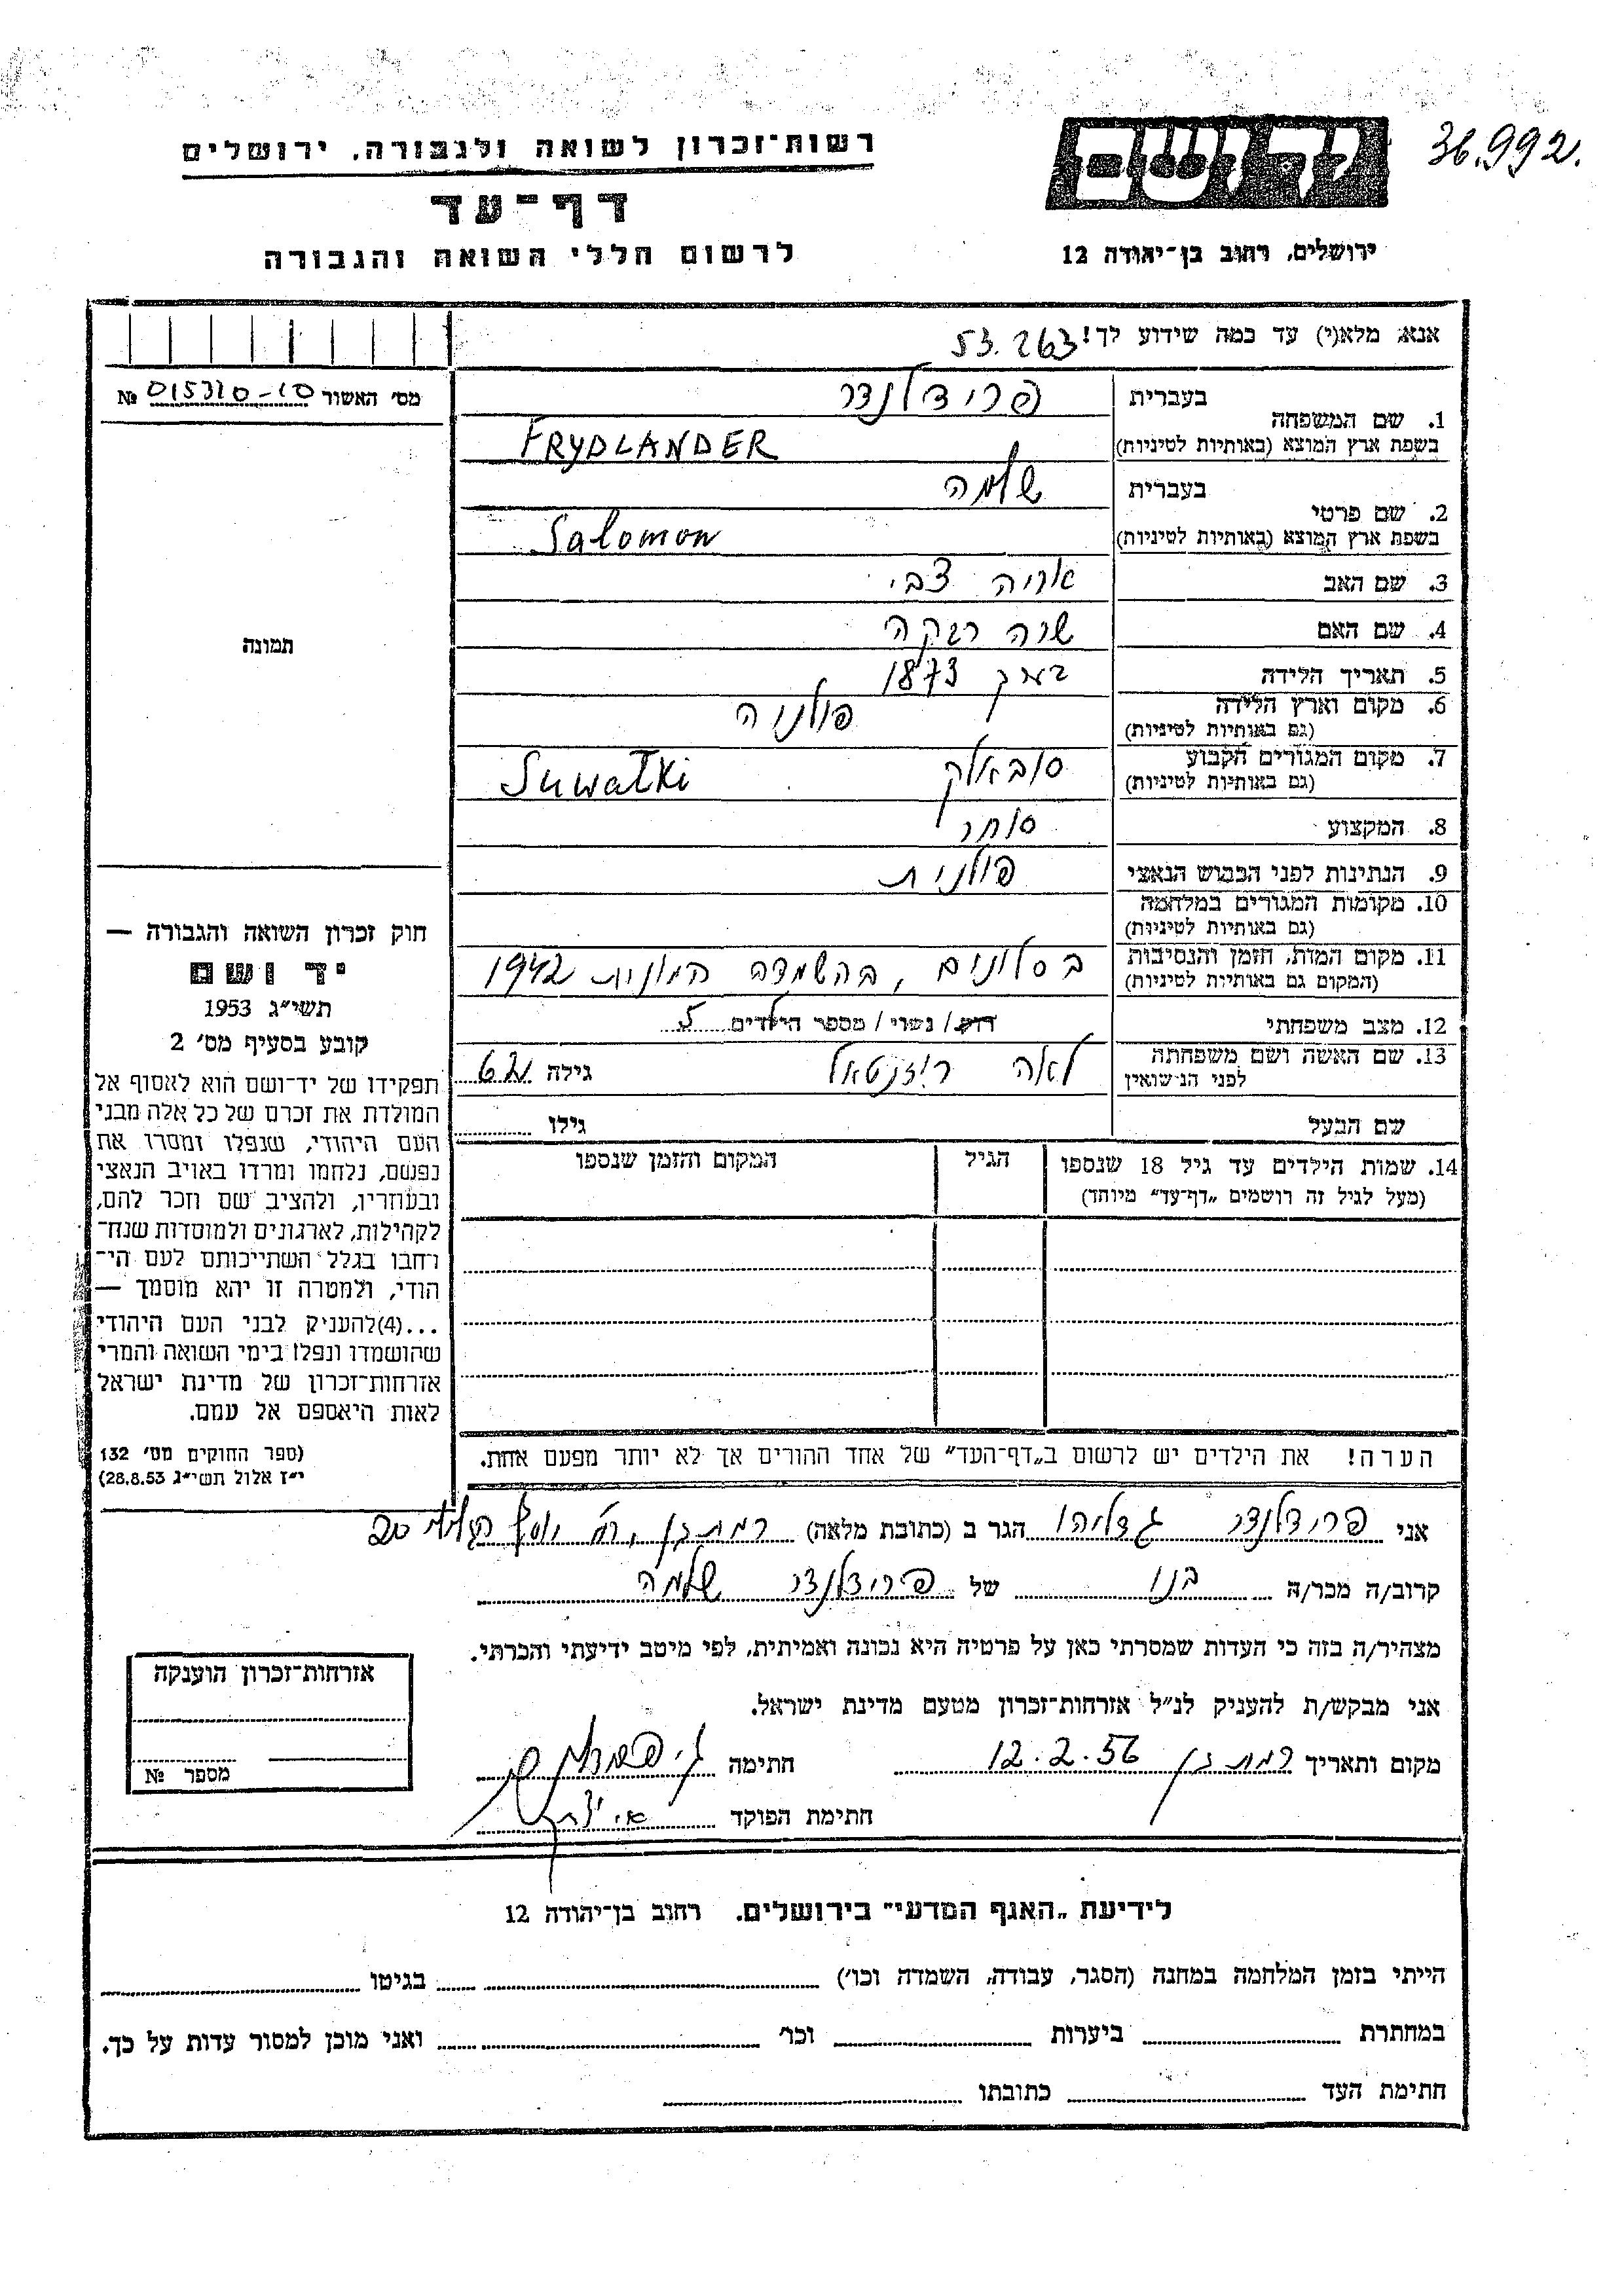 רשות־זכרון לשואה ולגבורה, ירושלים
דף־עד
לרשום חללי השואה והגבורה
ידושם
36.992.
ירושלים, רחוב בן־יהודה 12
אנא, מלא(י) עד כמה שידוע לך! 53.263
מס׳ האשור 015320-10 №
תמונה
1. שם המשפחה בעברית פרידלנדר
בשפת ארץ המוצא (באותיות לטיניות) FRYDLANDER
2. שם פרטי בעברית שלמה
בשפת ארץ המוצא (באותיות לטיניות) Salomon
3. שם האב אריה צבי
4. שם האם שרה רבקה
5. תאריך הלידה בערך 1873
6. מקום וארץ הלידה פולניה
(גם באותיות לטיניות)
7. מקום המגורים הקבוע סובאלק Suwałki
(גם באותיות לטיניות)
8. המקצוע סוחר
9. הנתינות לפני הכבוש הנאצי פולנית
10. מקומות המגורים במלחמה
(גם באותיות לטיניות)
11. מקום המות, הזמן והנסיבות בסלונים, בהשמדה המונית 1942
(המקום גם באותיות לטיניות)
12. מצב משפחתי רוק/ נשוי/ מספר הילדים 5
13. שם האשה ושם משפחתה לאה רוזנטאל גילה
לפני הנישואין
שם הבעל גילו
14. שמות הילדים עד גיל 18 שנספו הגיל המקום והזמן שנספו
(מעל לגיל זה רושמים „דף־עד״ מיוחד)
הערה! את הילדים יש לרשום ב„דף־העד״ של אחד ההורים אך לא יותר מפעם אחת.
חוק זכרון השואה והגבורה —
יד ושם
תשי״ג 1953
קובע בסעיף מס׳ 2
תפקידו של יד־ושם הוא לאסוף אל
המולדת את זכרם של כל אלה מבני
העם היהודי, שנפלו ומסרו את
נפשם, נלחמו ומרדו באויב הנאצי
ובעוזריו, ולהציב שם וזכר להם,
לקהילות, לארגונים ולמוסדות שנח־
רחבו בגלל השתייכותם לעם הי־
הודי, ולמטרה זו יהא מוסמך —
...(4)להעניק לבני העם היהודי
שהושמדו ונפלו בימי השואה והמרי
אזרחות־זכרון של מדינת ישראל
לאות היאספם אל עמם.
(ספר החוקים מס׳ 132
י״ז אלול תשי״ג 28.8.53)
אני פרידלנדר גדליהו הגר ב (כתובת מלאה) רמת גן, רח׳ 20
קרוב/ה מכר/ה בנו של פרידלנדר שלמה
מצהיר/ה בזה כי העדות שמסרתי כאן על פרטיה היא נכונה ואמיתית, לפי מיטב ידיעתי והכרתי.
אני מבקש/ת להעניק לנ״ל אזרחות־זכרון מטעם מדינת ישראל.
מקום ותאריך רמת גן 12.2.56 חתימה
חתימת הפוקד
אזרחות־זכרון הוענקה
מספר №
לידיעת „האגף המדעי״ בירושלים. רחוב בן־יהודה 12
הייתי בזמן המלחמה במחנה (הסגר, עבודה, השמדה וכו׳) בגיטו
במחתרת ביערות וכו׳ ואני מוכן למסור עדות על כך.
חתימת העד כתובתו